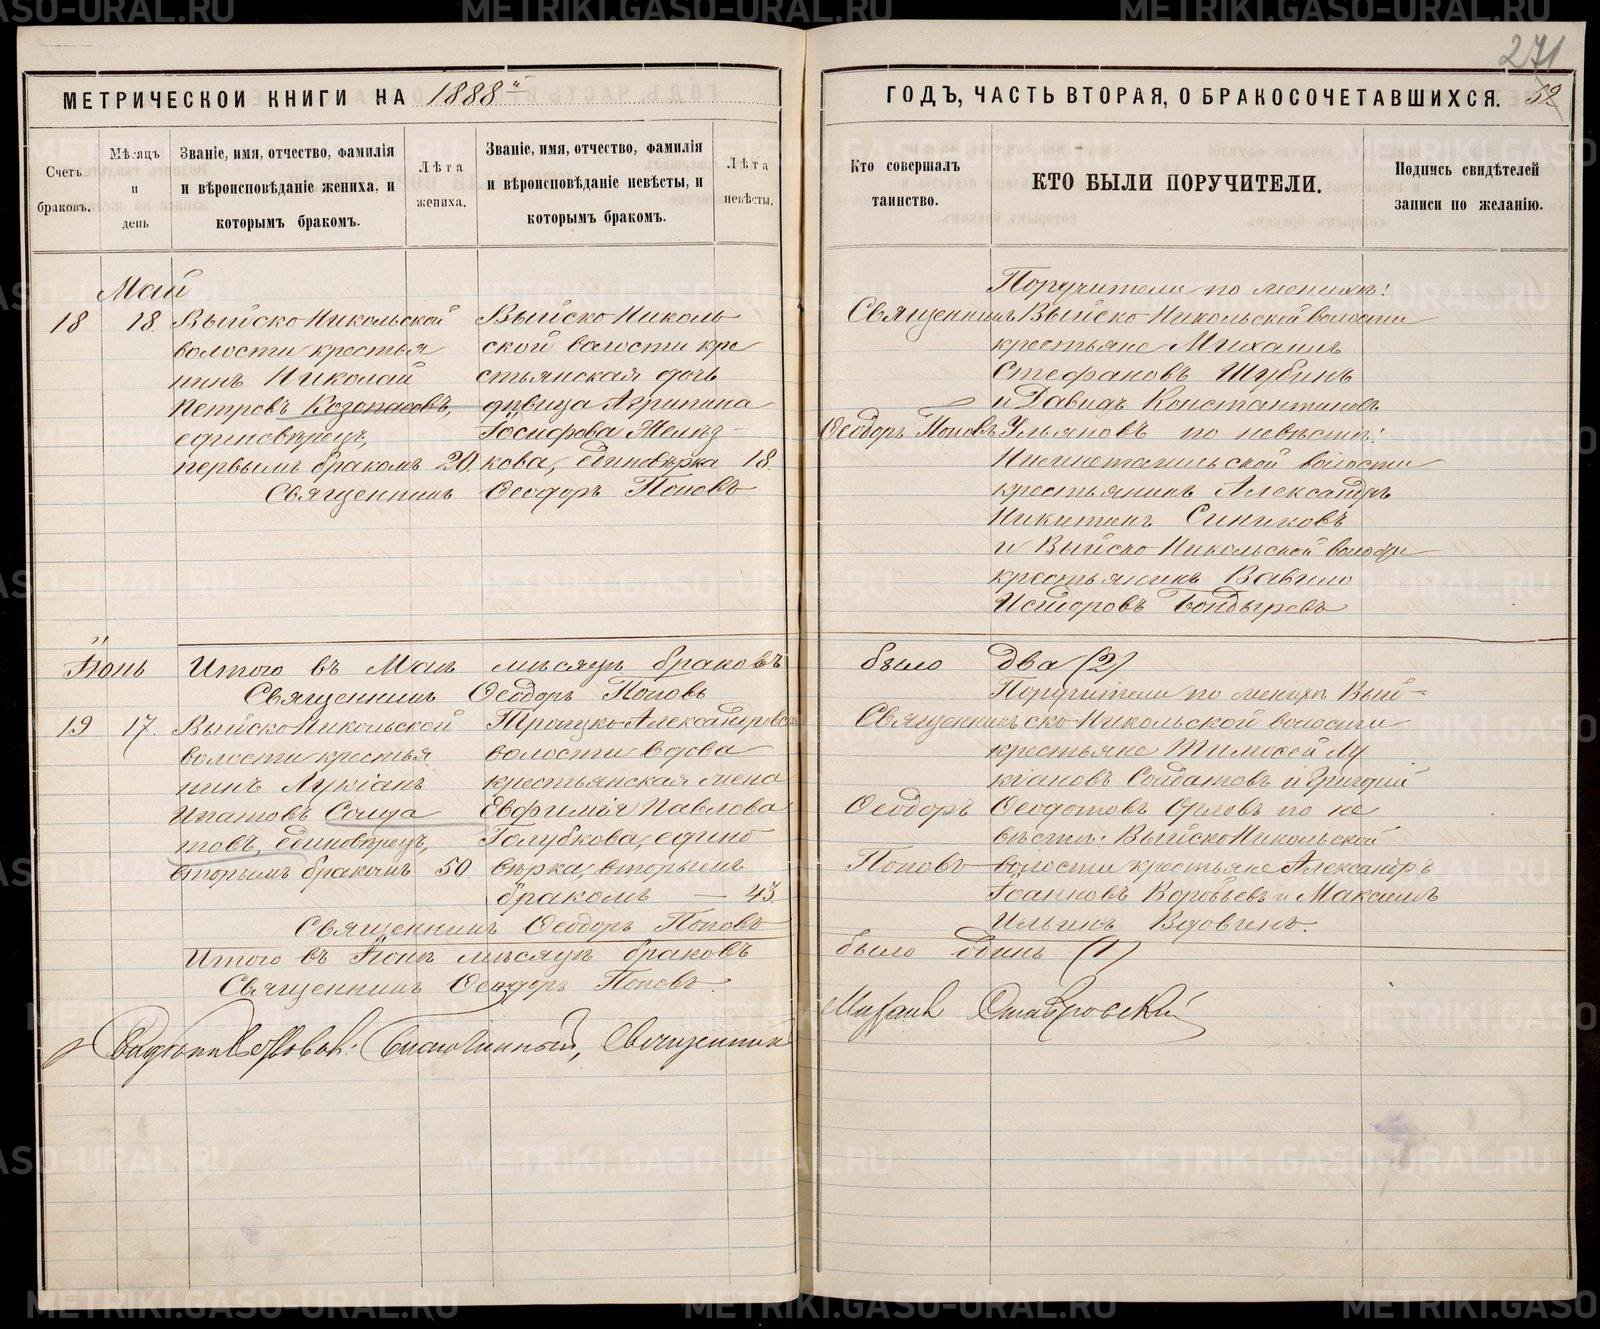 271
МЕТРИЧЕСКОЙ КНИГИ НА 1888й
Счетъ браковъ.
Мѣсяцъ и день
Званіе, имя, отчество, фамилія и вѣроисповѣданіе жениха, и которымъ бракомъ.
Лѣта жениха.
Званіе, имя, отчество, фамилія и вѣроисповѣданіе невѣсты, и которымъ бракомъ.
Лѣта невѣсты.
Май
18 18 Выйско Никольской
волости крестья
нинъ Николай
Петровъ Козопасовъ,
единовѣрецъ,
первымъ бракомъ 20.
Выйско Николь
ской волости кре
стьянская дочь
дѣвица Агрипина
Іосифова Желѣз
кова, единовѣрка 18.
Священникъ Ѳеодоръ Поповъ
Іюнь
Итого въ Маѣ мѣсяцѣ браковъ
Священникъ Ѳеодоръ Поповъ
19 17. Выйско Никольской
волости крестья
нинъ Лукіанъ
Ипатовъ Солда
товъ, единовѣрецъ,
вторымъ бракомъ 50
Троицко-Александровской
волости вдова
крестьянская жена
Евфимія Павлова
Голубкова, едино
вѣрка, вторымъ
бракомъ — 43.
Священникъ Ѳеодоръ Поповъ
Итого въ Іюнѣ мѣсяцѣ браковъ
Священникъ Ѳеодоръ Поповъ.
Благочинный, Священникъ
ГОДЪ, ЧАСТЬ ВТОРАЯ, О БРАКОСОЧЕТАВШИХСЯ. 52
Кто совершалъ таинство.
КТО БЫЛИ ПОРУЧИТЕЛИ.
Подпись свидѣтелей записи по желанію.
Священникъ
Ѳеодоръ Поповъ
Поручители по женихѣ:
Выйско Никольской волости
крестьяне Михаилъ
Стефановъ Шубинъ
и Давидъ Константиновъ
Ульяновъ по невѣстѣ:
Нижнетагильской волости
крестьянинъ Александръ
Никитинъ Синиковъ
и Выйско Никольской волости
крестьянинъ Вавило
Исидоровъ Бондыревъ
было два (2)
Священникъ
Ѳеодоръ
Поповъ
Поручители по женихѣ Вый-
ско Никольской волости
крестьяне Тимоѳей Лу
кіановъ Солдатовъ и Григорій
Ѳеодотовъ Орловъ по не
вѣстѣ: Выйско Никольской
волости крестьяне Александръ
Іоанновъ Воробьевъ и Максимъ
Ильинъ Вдовинъ.
было одинъ (1)
Михаилъ Ставровскій
METRIKI.GASO-URAL.RU